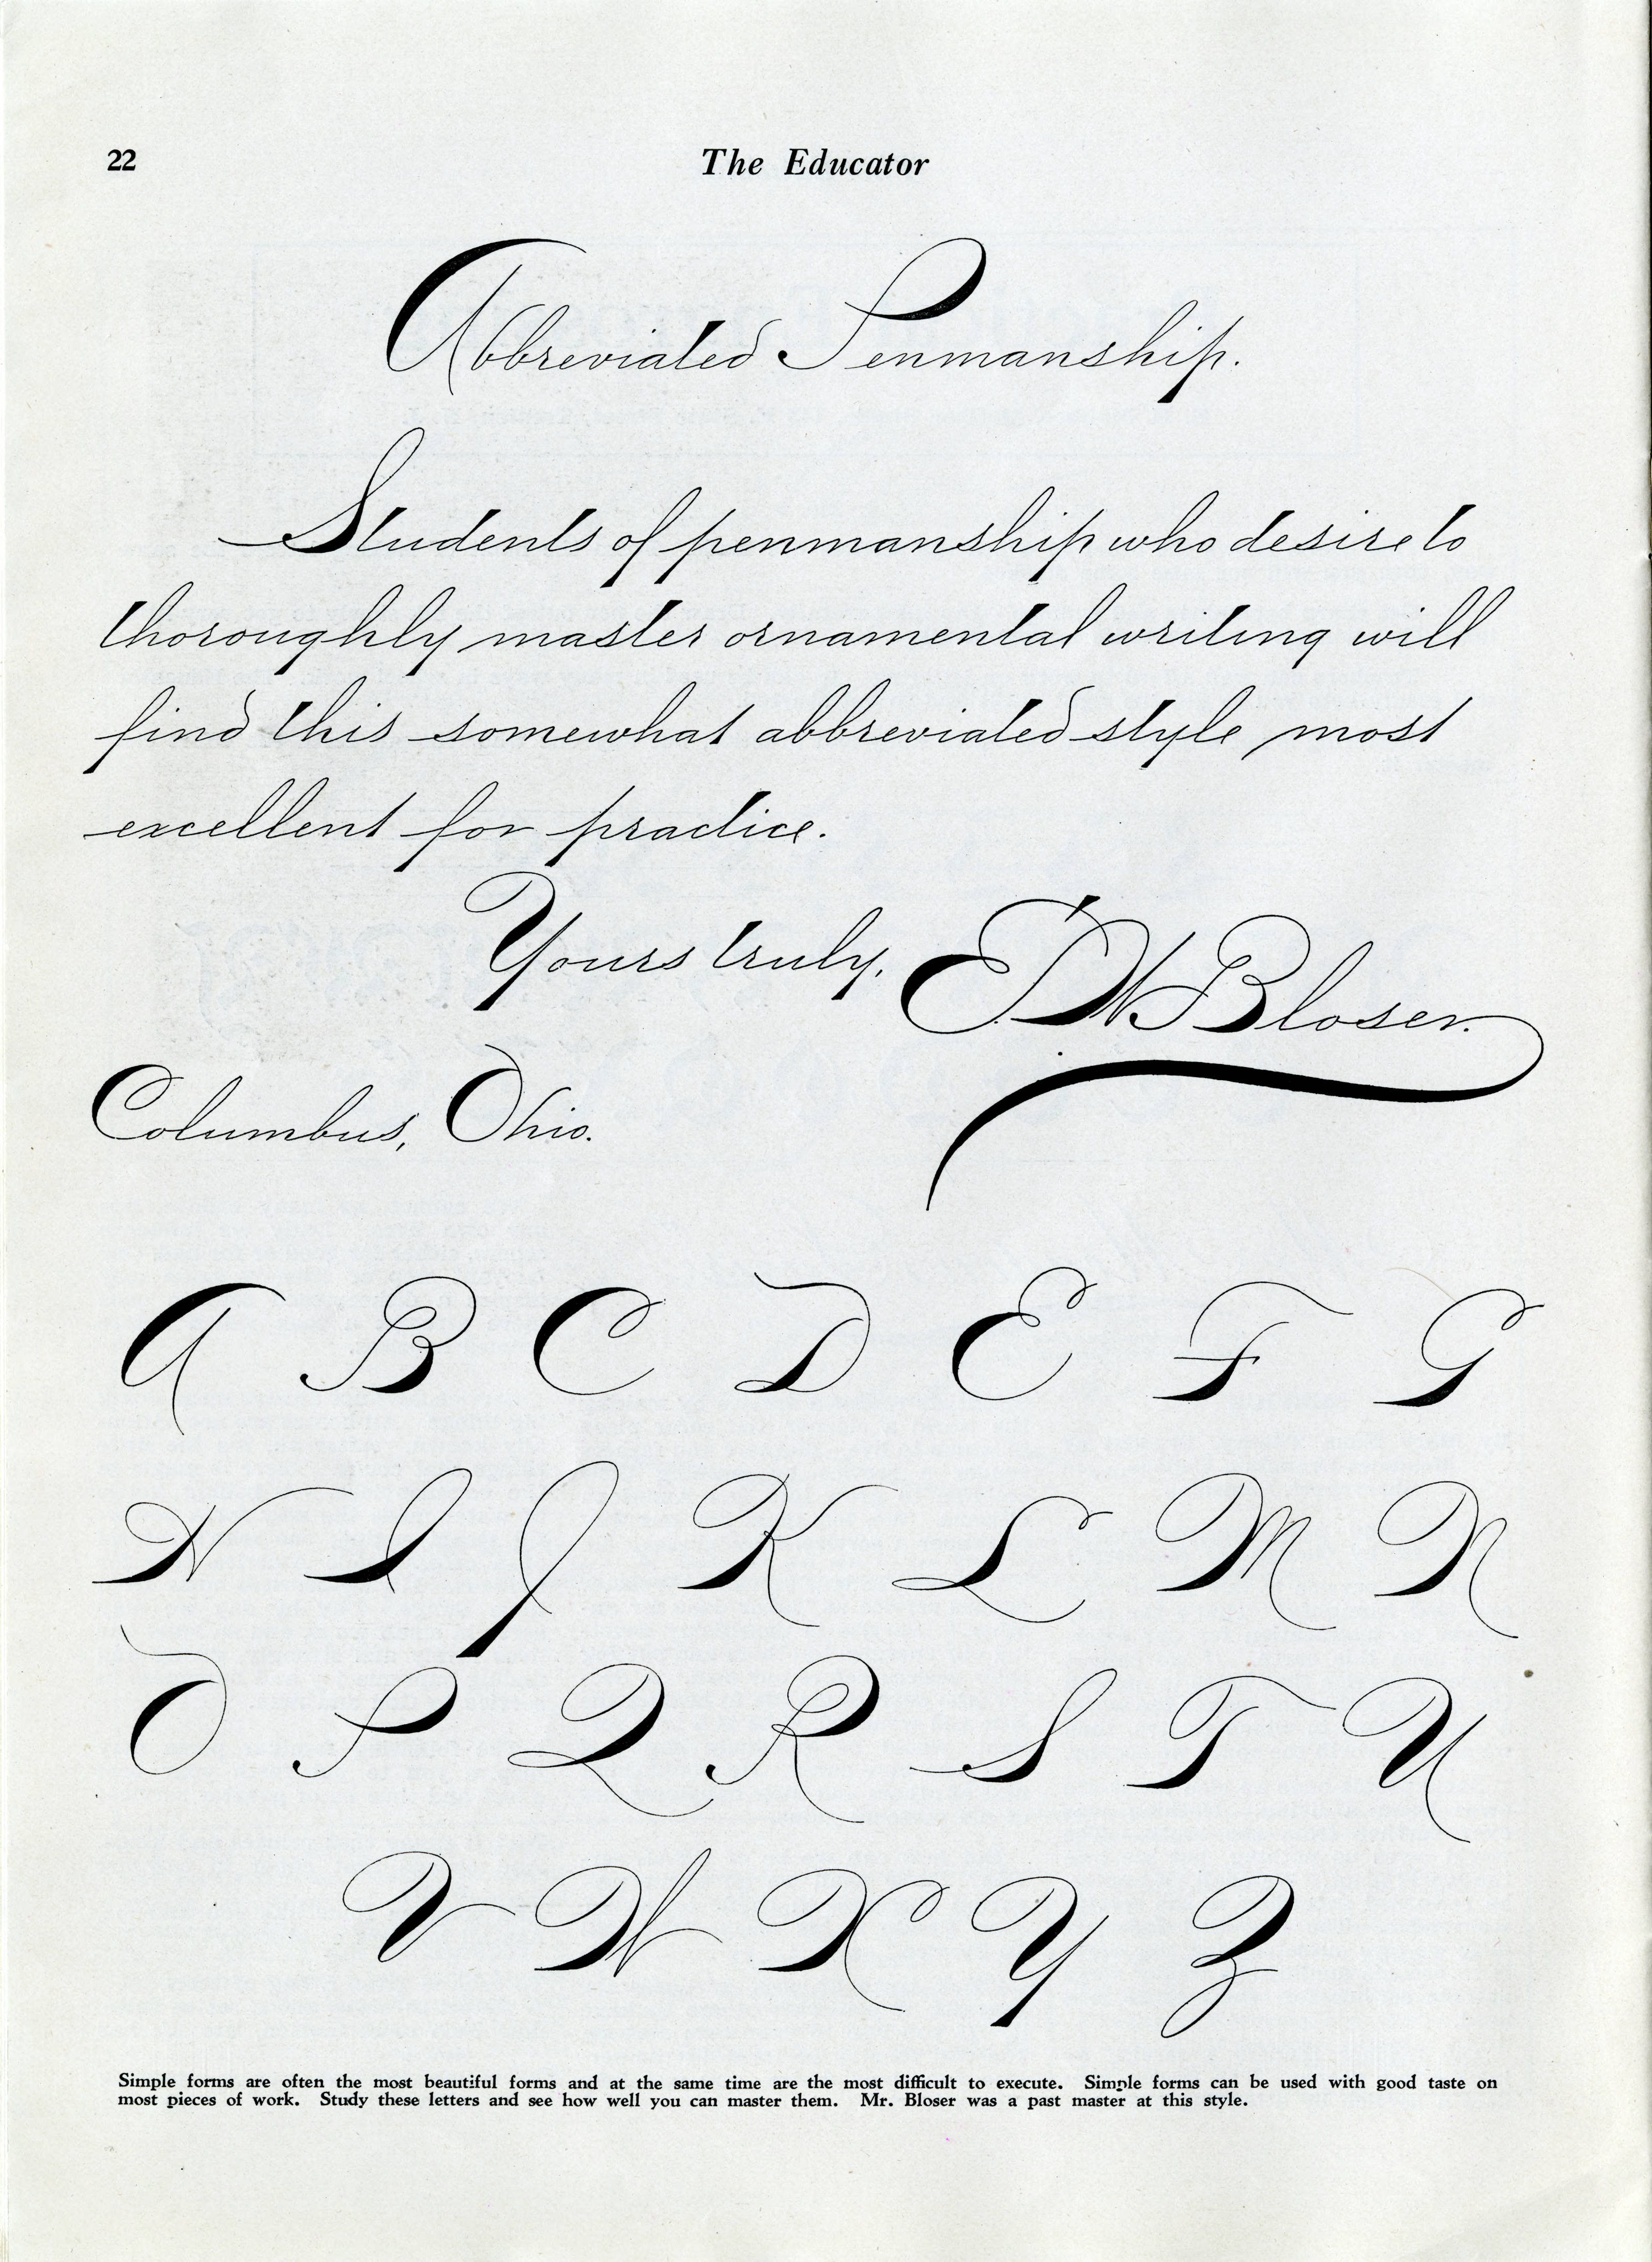 22
The Educator
Abbreviated Penmanship.
Students of penmanship who desire to
thoroughly master ornamental writing will
find this somewhat abbreviated style most
excellent for practice.
Yours truly, E. W. Bloser.
Columbus, Ohio.
A B C D E F G
H I J K L M N
O P Q R S T U
V W X Y Z
Simple forms are often the most beautiful forms and at the same time are the most difficult to execute. Simple forms can be used with good taste on
most pieces of work. Study these letters and see how well you can master them. Mr. Bloser was a past master at this style.